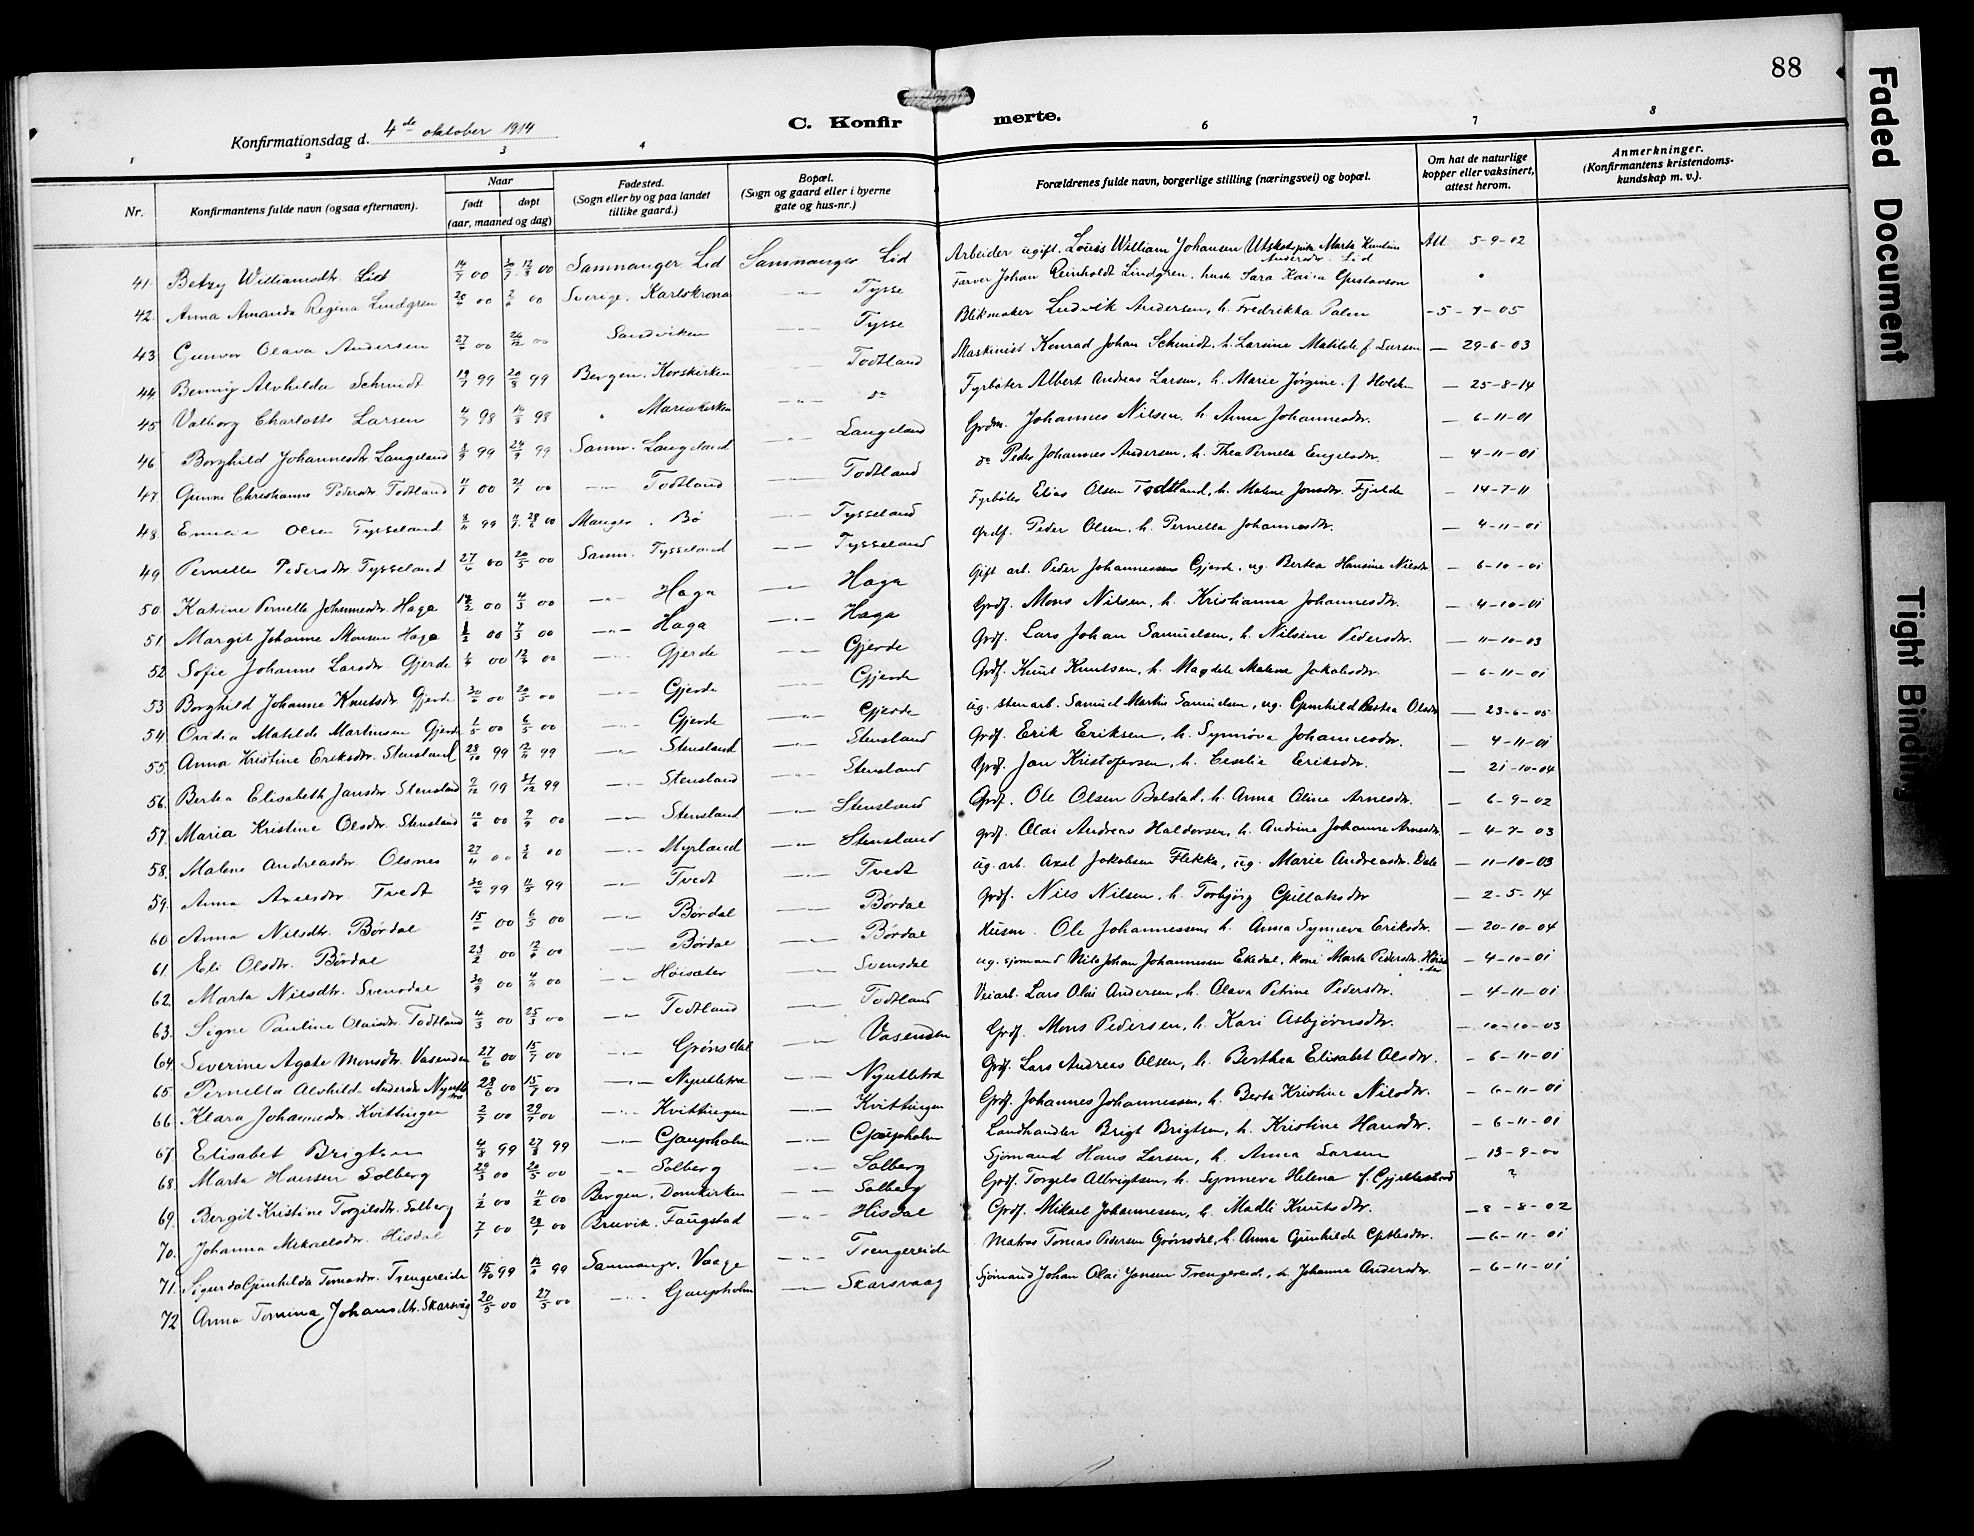 88
Konfirmationsdag d. 4de oktober 1914
C. Konfirmerte.
1 2 3 4 6 7 8
Nr. Konfirmantens fulde navn (ogsaa efternavn). Naar født døpt (aar, maaned og dag) Fødested. (Sogn eller by og paa landet tillike gaard.) Bopæl. (Sogn og gaard eller i byerne gate og hus-nr.) Forældrenes fulde navn, borgerlige stilling (næringsvei) og bopæl. Om hat de naturlige kopper eller vaksinert, attest herom. Anmerkninger. (Konfirmantens kristendomskundskap m. v.).
41. Betzy Williamsdtr. Lid 14/7 00 12/8 00 Samnanger Lid Samnanger Lid Arbeider ugift. Louis William Johansen Marta Andersdtr. Lid Att 5-9-02
42. Anna Amanda Regina Lindgren 00 00 Sverige. Karlskrona -"- Tysse Farver Johan Reinholdt Lindgren. hust. Sara Kaisa Gustavson "
43. Gunvor Olava Andersen 00 00 Sandviken -"- Tysse Blikmaker Ludvik Andersen, h. Fredrikka Palm -5-7-05
44. Benny Alvhilda Schmidt 19/7 99 20/8 99 Bergen. Korskirken -"- Todtland Maskinist Konrad Johan Schmidt. h. Larsine Matilde f. Larsen — 29-6-03
45. Valborg Charlotte Larsen 4/7 98 14/8 98 " Mariakirken -"- do Fyrbøter Albert Andreas Larsen, h. Marie Jørgine. f. Holden — 25-8-14
46. Borghild Johannesdtr Langeland 99 24/9 99 Samn. Langeland -"- Langeland Grdm. Johannes Nilsen, h. Anna Johannesdtr. — 6-11-01
47. Gunna Christianne Pedersdtr. Todtland 00 00 -"- Todtland -"- Todtland do Peder Johannes Andersen, h. Thea Pernela Engelsdtr. — 4-11-01
48. Olsen Tysseland 8/11 99 00 Manger. Bø -"- Tysseland Fyrbøter Elias Olsen Todtland, h. Malene Jonsdtr. Fjelde — 14-7-11
49. Pernella Pedersdtr Tysseland 00 20/5 00 Samn. Tysseland -"- Tysseland Grdf. Peder Olsen. h. Pernella Johannesdtr. — 4-11-01
50. Katrine Pernelle Johannesdtr. Haga 00 4/3 00 -"- Haga -"- Haga Gift arb. Peder Johannessen Gjerde. ug. Bertea Hansine Nilsdtr — 6-10-01
51. Margit Johanne Monsen Haga 00 4/3 00 -"- Haga -"- Haga Grdf. Mons Nilsen, h. Kristianna Johannesdtr. — 4-10-01
52. Sofie Johanne Larsdtr Gjerde 00 00 -"- Gjerde -"- Gjerde Grdf. Lars Johan Samuelsen, h. Nilsine Pedersdtr. — 11-10-03
53. Borghild Johanne Knutsdtr Gjerde 00 20/5 00 -"- Gjerde -"- Gjerde Grdf. Knut Knutsen, h. Magdela Malene Jakobsdtr. — 6-11-01
54. Ovidia Matilde Martinsen Gjerde 1/5 00 6/5 00 -"- Gjerde -"- Gjerde ug. stenarb. Samuel Martin Samuelsen, ug. Gunhild Bertea Olsdtr — 23-6-05
55. Anna Kristine Eriksdtr. Stensland 28/10 99 99 -"- Stensland -"- Stensland Grdf. Erik Eriksen, h. Synnøva Johannesdtr. — 4-11-01
56. Bertea Elisabeth Jansdtr. Stensland 99 31/12 99 -"- Stensland -"- Stensland Grdf. Jan Kristofersen, h. Ceselie Eriksdtr. — 21-10-04
57. Maria Kristine Olsdtr. Stensland 00 00 -"- Stensland -"- Stensland Grdf. Ole Olsen Bolstad, h. Anna Olina Arnesdtr. — 6-9-02
58. Malene Andreasdtr Olsnes 00 00 -"- Myrland -"- Stensland grdf. Olai Andreas Haldorsen, h. Andrina Johanna Arnesdtr. — 4-7-03
59. Anna Axelsdtr. Tvedt 30/4 99 11/5 99 -"- Tvedt -"- Tvedt ug. arb. Axel Jakobsen Flekke, ug. Marie Andreasdtr. Dale — 11-10-03
60. Anna Nilsdtr. Børdal 00 6/5 00 -"- Børdal -"- Børdal Grdf. Nils Nilsen, h. Torbjørg — 2-5-14
61. Eli Olsdtr. Børdal 23/2 00 00 -"- Børdal -"- Børdal Husm. Ole Johannessen h. Anna Synneva Eriksdtr. — 20-10-04
62. Marta Nilsdtr. Svensdal 00 00 -"- Høisæter -"- Svensdal ug. sjømand Nils Johan Johannessen Ekedal, kone Marta Pedersdtr. Høisæter — 4-10-01
63. Signe Pauline Olaisdtr. Todtland 4/3 00 25/3 00 -"- Todtland -"- Todtland Veiarb. Lars Olai Andersen, h. Olava Petrine Pedersdtr. — 4-11-01
64. Severine Agate Monsdtr. Vasenden 27/6 00 15/7 00 -"- Grønsdal -"- Vasenden Grdf. Mons Pedersen, h. Kari Asbjørnsdtr. — 10-10-03
65. Pernella Alvhild Andersdtr Nyutletræ 28/6 00 15/7 00 -"- Nyutletræ -"- Nyutletræ Grdf. Lars Andreas Olsen, h. Berthea Elisabet Olsdtr. — 6-11-01
66. Klara Johannesdtr. Kvittingen 2/7 00 29/7 00 -"- Kvittingen -"- Kvittingen Grdf. Johannes Johannessen, h. Berta Kristine Nilsdtr. — 6-11-01
67. Elisabet Brigtsen 4/8 99 27/8 99 -"- Gaupholm -"- Gaupholm Landhandler Brigt Brigtsen, h. Kristine Hansdtr. — 6-11-01
68. Marta Hansen Solberg 00 20/5 00 -"- Solberg -"- Solberg Sjømand Hans Larsen, h. Anna Larsen — 13-9-00
69. Bergit Kristine Torgilsdtr. Solberg 1/2 00 11/2 00 Bergen. Domkirken -"- Solberg Grdf. Torgels Albrigtsen, h. Synneva Helena f. Gjellestad ?
70. Johanna Mikaelsdtr. Hisdal 7/7 00 29/7 00 Bruvik. Faugstad -"- Hisdal Grdf. Mikael Johannessen, h. Madli Knutsdtr. — 8-8-02
71. Sigurda Gunhilda Tomasdtr. Trengereide 15/10 99 99 Samnanger. Vaage -"- Trengereide Matros Tomas Pedersen Grønsdal, h. Anna Gunhilde — 6-11-01
72 Anna Tomina Johansdtr. Skarsvåg 20/5 00 27/5 00 -"- Gaupholm -"- Skarsvaag Sjømand Johan Olai Jensen Trengereid, h. Johanna Andersdtr. — 6-11-01
Faded Document
Tight Binding